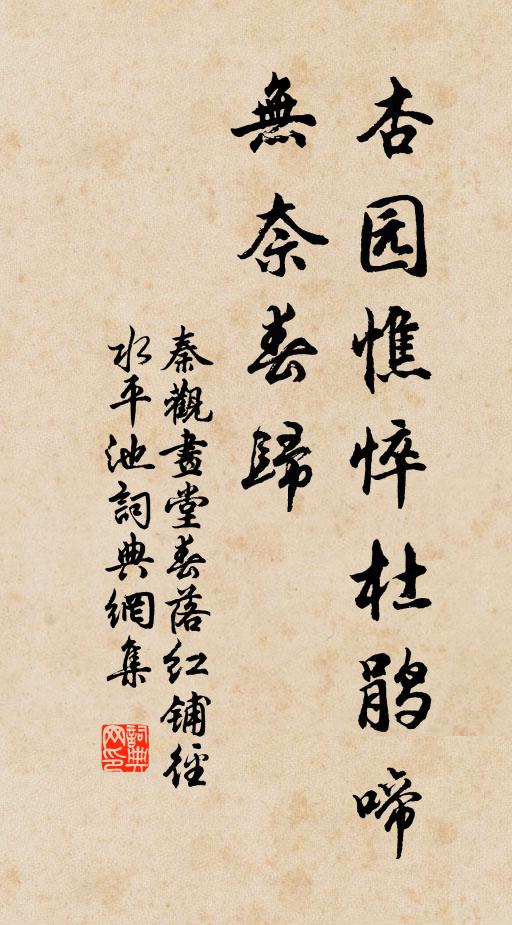 杏园憔悴杜鹃啼
無奈春歸
秦觀畫堂春落红铺徑
水平池詞典網集
詞典网印